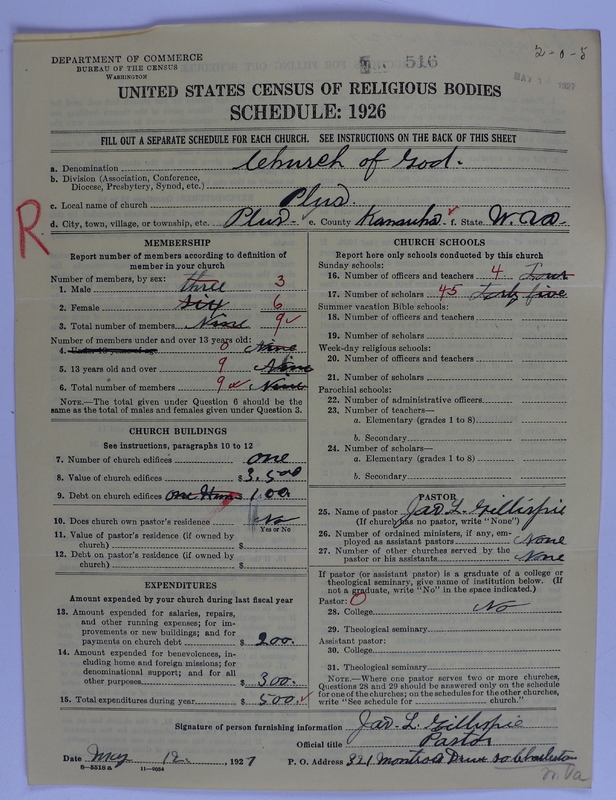 DEPARTMENT OF COMMERCE
BUREAU OF THE CENSUS
WASHINGTON
516
2-0-5
UNITED STATES CENSUS OF RELIGIOUS BODIES
SCHEDULE: 1926
FILL OUT A SEPARATE SCHEDULE FOR EACH CHURCH. SEE INSTRUCTIONS ON THE BACK OF THIS SHEET
a. Denomination Church of God.
b. Division (Association, Conference,
Diocese, Presbytery, Synod, etc.)
c. Local name of church Plus.
d. City, town, village, or township, etc. Plus e. County Kanawha f. State W. Va.
R
MEMBERSHIP
Report number of members according to definition of
member in your church
Number of members, by sex:
1. Male three 3
2. Female six 6
3. Total number of members Nine 9
Number of members under and over 13 years old:
4. Under 13 years of age 0 None
5. 13 years old and over 9 Nine
6. Total number of members 9 Nine
NOTE.—The total given under Question 6 should be
same as the total of males and females given under Question 3.
CHURCH BUILDINGS
See instructions, paragraphs 10 to 12
7. Number of church edifices one
8. Value of church edifices $ 3.500
9. Debt on church edifices 100.
10. Does church own pastor's residence No
Yes or No
11. Value of pastor's residence (if owned by
church) $
12. Debt on pastor's residence (if owned by
church) $
EXPENDITURES
Amount expended by your church during last fiscal year
13. Amount expended for salaries, repairs,
and other running expenses; for im-
provements or new buildings; and for
payments on church debt $ 200.
14. Amount expended for benevolences, in-
cluding home and foreign missions; for
denominational support; and for all
other purposes $ 300.
15. Total expenditures during year $ 500.
CHURCH SCHOOLS
Report here only schools conducted by this church
Sunday schools:
16. Number of officers and teachers 4 Four
17. Number of scholars 45 Forty five
Summer vacation Bible schools:
18. Number of officers and teachers
19. Number of scholars
Week-day religious schools:
20. Number of officers and teachers
21. Number of scholars
Parochial schools:
22. Number of administrative officers
23. Number of teachers—
a. Elementary (grades 1 to 8)
b. Secondary
24. Number of scholars—
a. Elementary (grades 1 to 8)
b. Secondary
PASTOR
25. Name of pastor Jas L. Gillispie
(If church has no pastor, write "None")
26. Number of ordained ministers, if any, em-
ployed as assistant pastors None
27. Number of other churches served by the
pastor or his assistants None
If pastor (or assistant pastor) is a graduate of a college or
theological seminary, give name of institution below. (If
not a graduate, write "No" in the space indicated.)
Pastor: 0
28. College No
29. Theological seminary
Assistant pastor:
30. College
31. Theological seminary
NOTE.—Where one pastor serves two or more churches,
Questions 28 and 29 should be answered only on the schedule
for one of the churches; on the schedules for the other churches,
write "See schedule for church."
Signature of person furnishing information Jas. L. Gillispie
Official title Pastor
Date May 12, 1927 P. O. Address 321 Montrose Drive So Charleston
W. Va
8—5518 a 11—9054